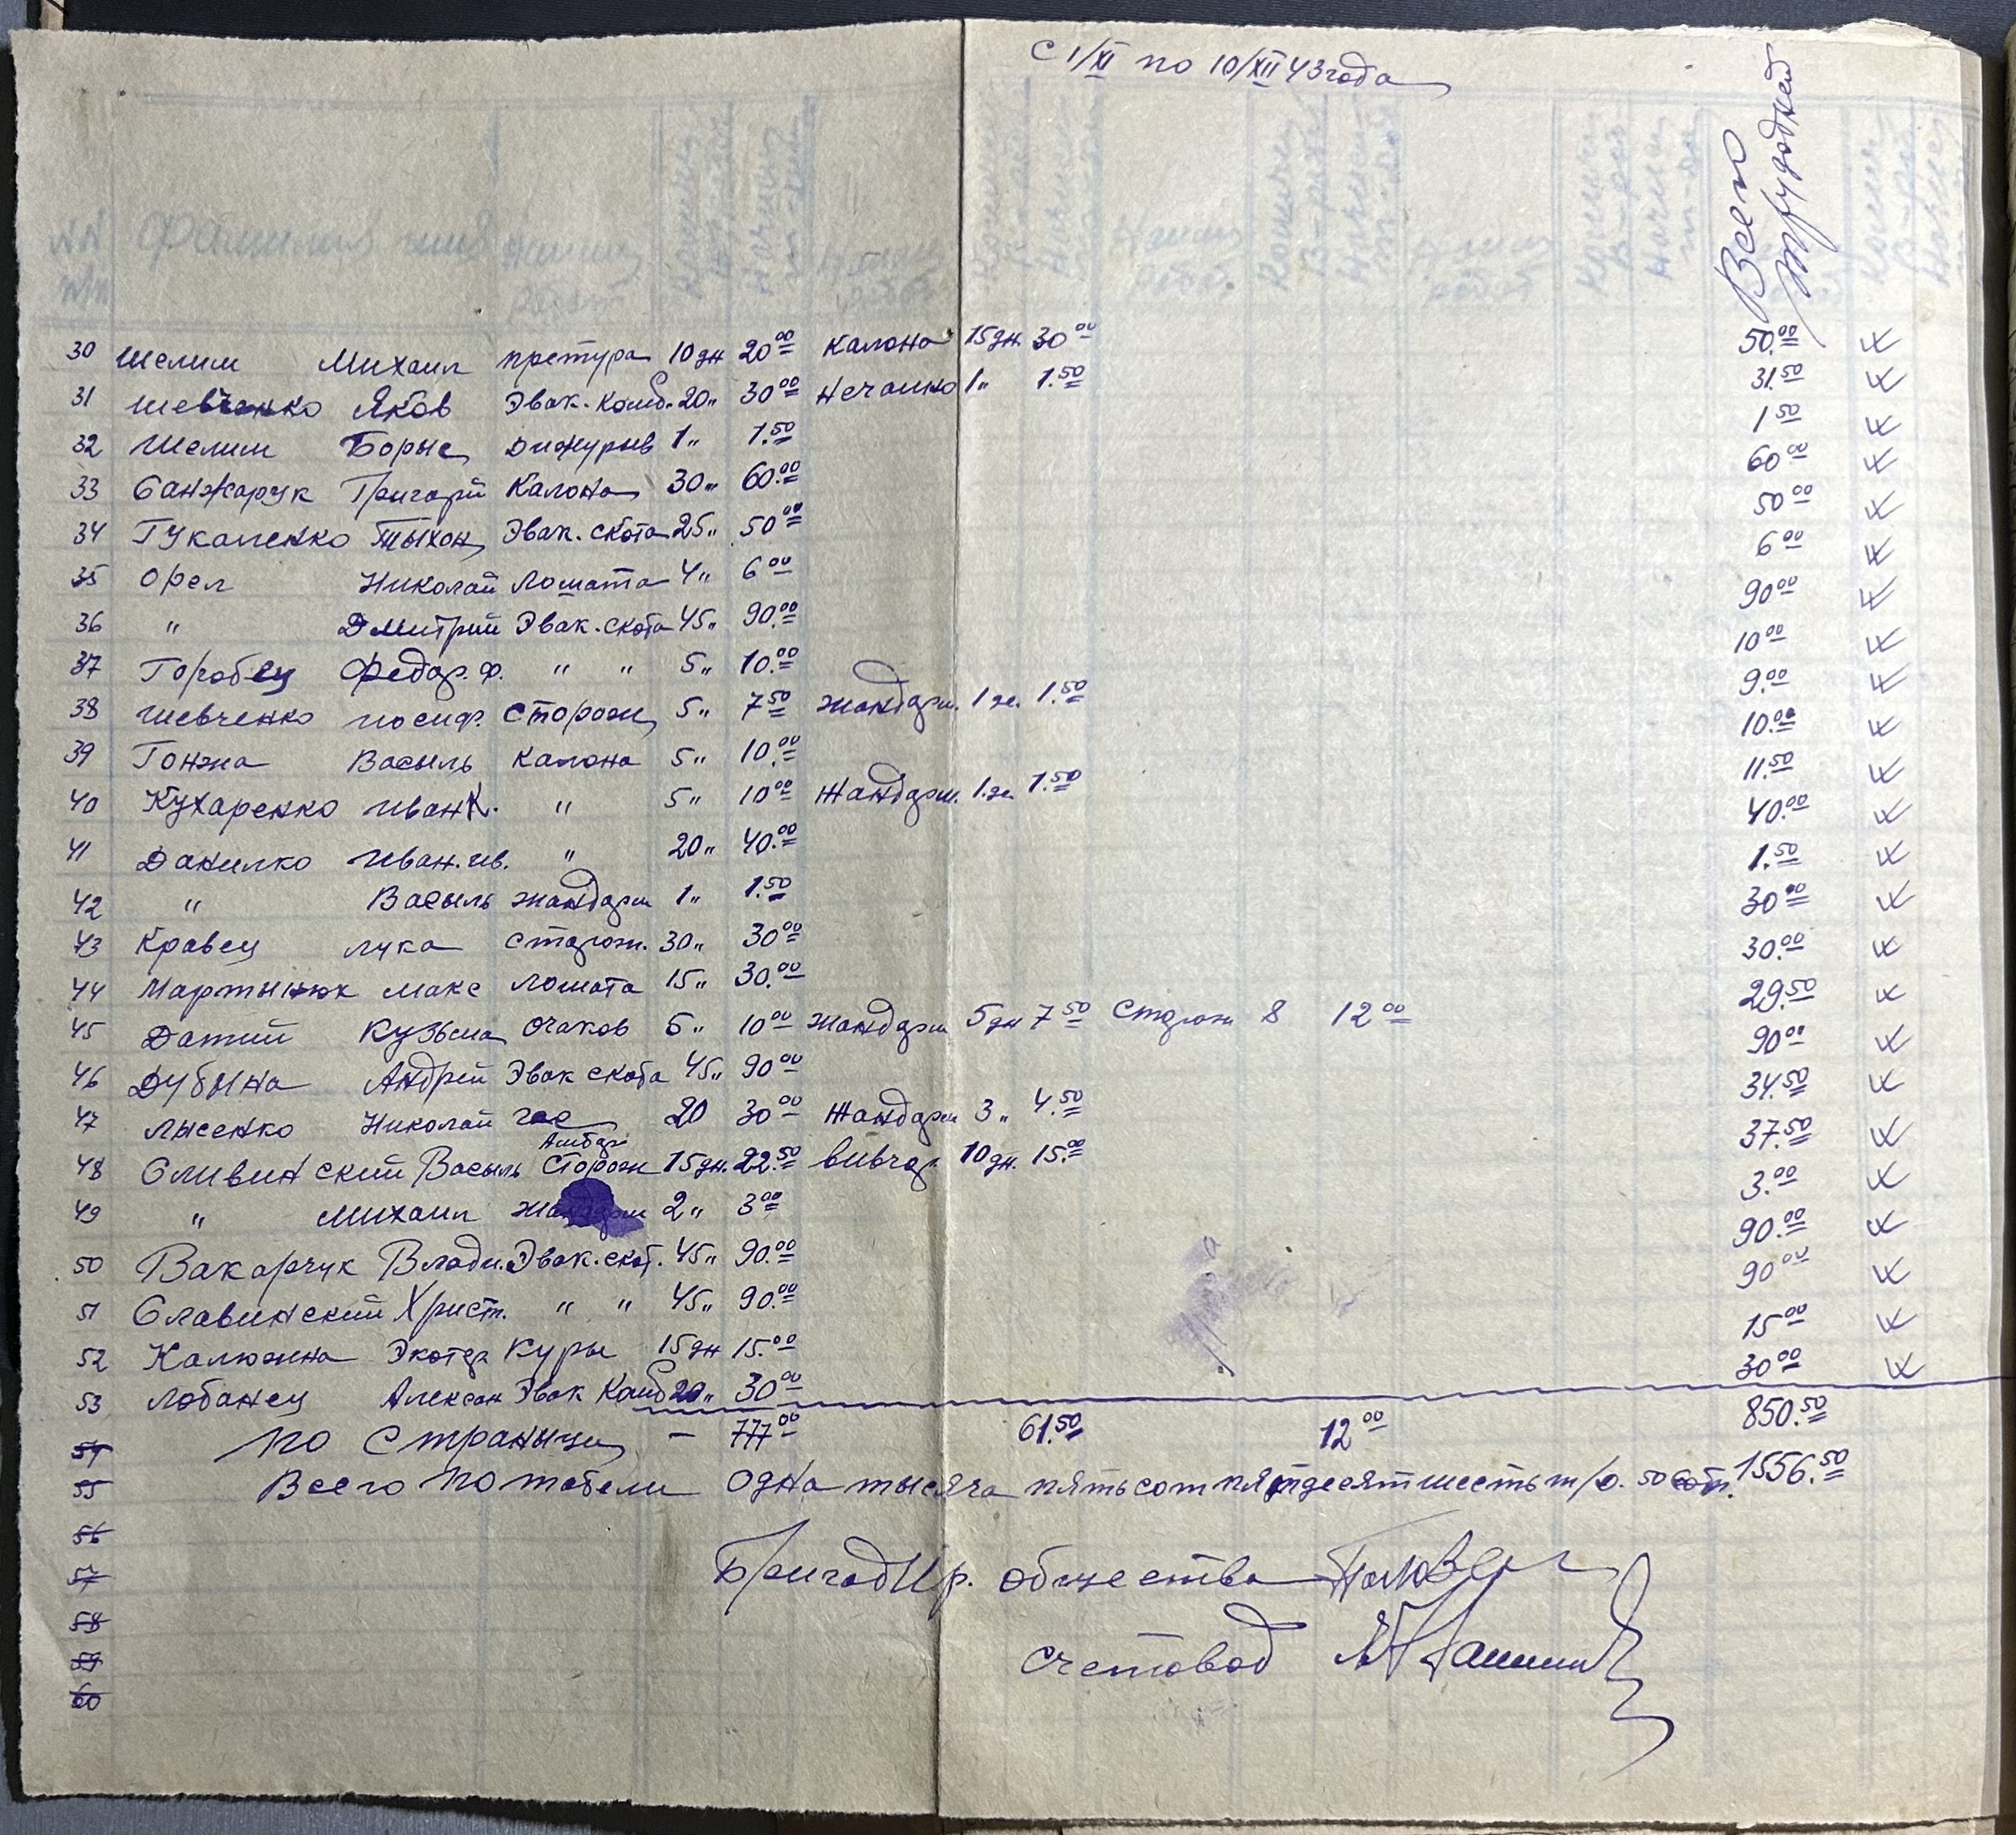 С 1/XI по 10/XII 43 года
Всего трудодней
30 Шелим Михаил претура 10 дн 20.00 Калона 15 дн 30.00 50.00
31 Шевченко Яков Эвак. Комб. 20 " 30.00 Нечаяно 1 " 1.50 31.50
32 Шелим Борыс Дижурив 1 " 1.50 1.50
33 Санжарук Григорий Калона 30 " 60.00 60.00
34 Гукаленко Тыхон Эвак. скота 25 " 50.00 50.00
35 Орел Николай Лошата 4 " 6.00 6.00
36 " Дмитрий Эвак. скота 45 " 90.00 90.00
37 Горобец Федор. Ф. " " 5 " 10.00 10.00
38 Шевченко иосиф. Сторож 5 " 7.50 жандарм. 1 дн. 1.50 9.00
39 Гонжа Васыль Калона 5 " 10.00 10.00
40 Кухаренко Иван К. " 5 " 10.00 Жандарм. 1 дн. 1.50 11.50
41 Данилко Иван. ив. " 20 " 40.00 40.00
42 " Васыль жандарм 1 " 1.50 1.50
43 Кравец лука сторож. 30 " 30.00 30.00
44 Мартынюк Макс Лошата 15 " 30.00 30.00
45 Датий Кузьма Очаков 5 " 10.00 жандарм 5 дн 7.50 Сторож 8 12.00 29.50
46 Дубына Андрей Эвак скота 45 " 90.00 90.00
47 Лысенко Николай 20 30.00 Жандарм 3 " 4.50 34.50
48 Сливинский Васыль Амбар Сторож 15 дн. 22.50 вивчар 10 дн. 15.00 37.50
49 " Михаил жандарм 2 " 3.00 3.00
50 Вакарчук Влади. Эвак. скот. 45 " 90.00 90.00
51 Славинский Христ. " " 45 " 90.00 90.00
52 Калюжна Экотер Куры 15 дн 15.00 15.00
53 Лобанец Алексан Эвак Комб 20 " 30.00 30.00
54 По Страныци - 777.00 61.50 12.00 850.50
55 Всего по табели Одна тысяча пятьсот пятдесят шесть т/д. 50 сот. 1556.50
56
57 Бригадир. общества
58
59 Счетовод
60